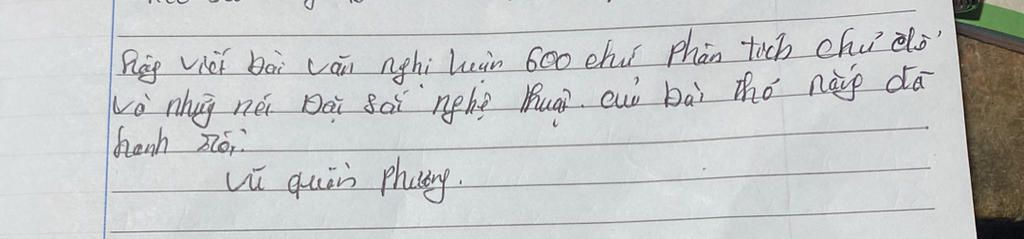 Hãy viết bài văn nghị luận 600 chữ phân tích chủ đề
và những nét đặc sắc nghệ thuật của bài thơ nắng đã
hanh rồi.
Vũ quần phương.